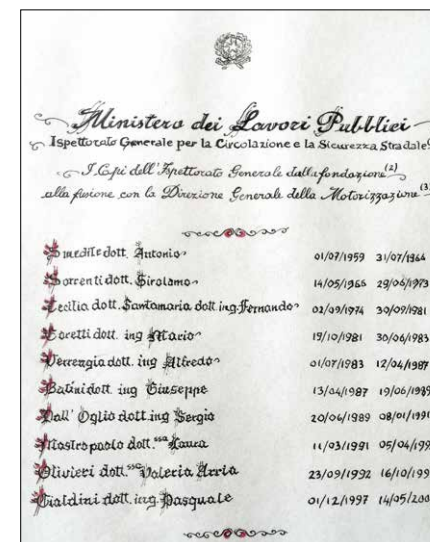 Ministero dei Lavori Pubblici
Ispettorato Generale per la Circolazione e la Sicurezza Stradale
I Capi dell'Ispettorato Generale dalla fondazione (2)
alla fusione con la Direzione Generale della Motorizzazione (3)
Smedile dott. Antonio 01/07/1959 31/07/1964
Sorrenti dott. Girolamo 14/05/1966 29/06/1973
Cecilia dott. Santamaria dott. ing. Fernando 02/09/1974 30/09/1981
Coretti dott. ing Mario 19/10/1981 30/06/1983
Verrengia dott. ing Alfredo 01/07/1983 12/04/1987
Batini dott. ing Giuseppe 13/04/1987 19/06/1989
Dall' Oglio dott. ing Sergio 20/06/1989 08/01/1991
Mastropaolo dott.ssa Laura 11/03/1991 05/04/199
Olivieri dott.ssa Valeria Arria 23/09/1992 16/10/199
Cialdini dott. ing. Pasquale 01/12/1997 14/05/200